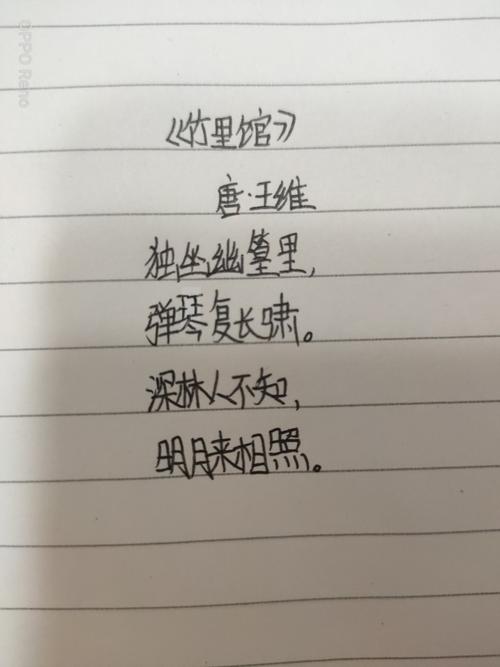 《竹里馆》
唐·王维
独坐幽篁里,
弹琴复长啸。
深林人不知,
明月来相照。
OPPO Reno